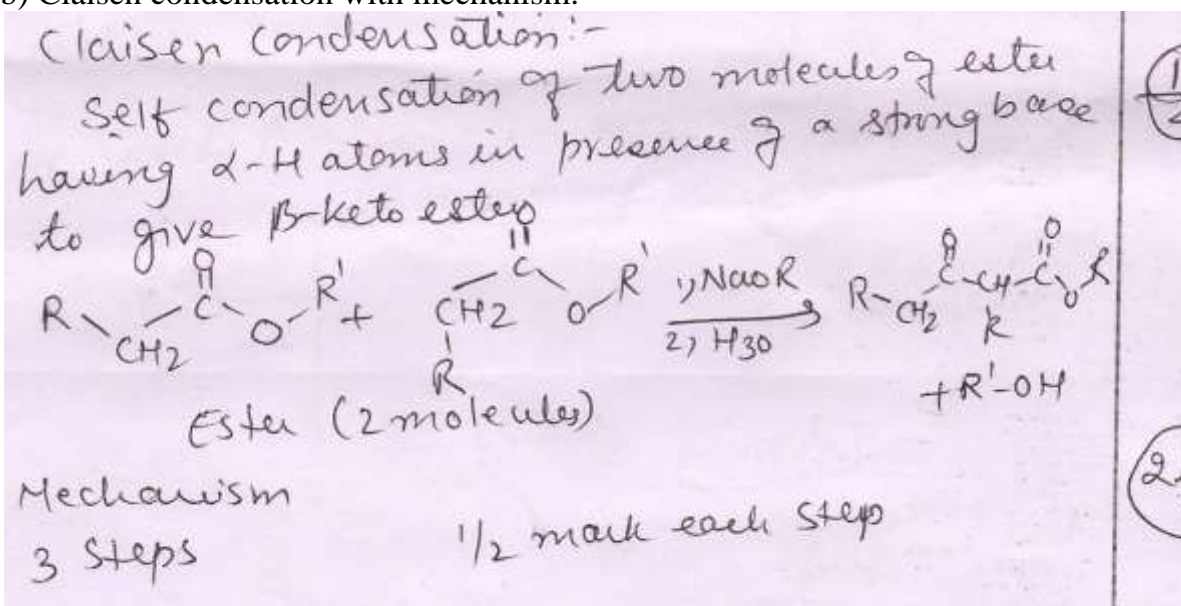 b) Claisen condensation with mechanism.
Claisen Condensation:-
Self condensation of two molecules of ester
having α-H atoms in presence of a strong base
to give β-keto ester
R CH2 C O O R' + CH2 R C O O R' 1, NaOR 2, H3O R-CH2 C O CH R C O O R
+ R'-OH
Ester (2 molecules)
Mechanism
3 Steps 1/2 mark each step